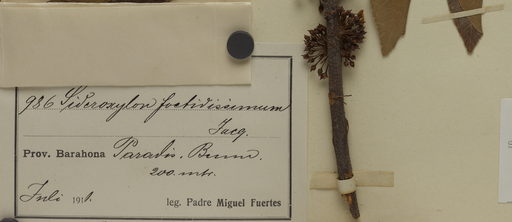 986 Sideroxylon foetidissimum
Jacq.
Prov. Barahona Paradis.
200 mtr.
Juli 1911. leg. Padre Miguel Fuertes